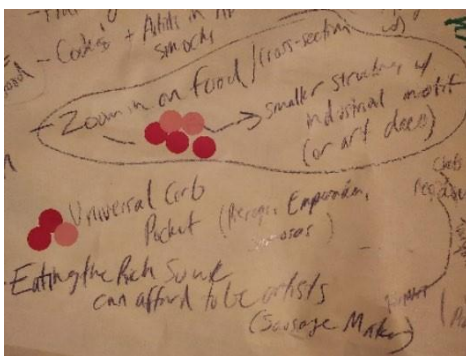 - Codes + Artists in
smocks
- Zoom in on Food / cross-section
smaller structure w/
industrial motif
(or art deco)
Universal Carb
Pocket (Pierogi, Empanadas,
Samosas)
Eating the Rich So we
can afford to be artists
(Sausage Maker)